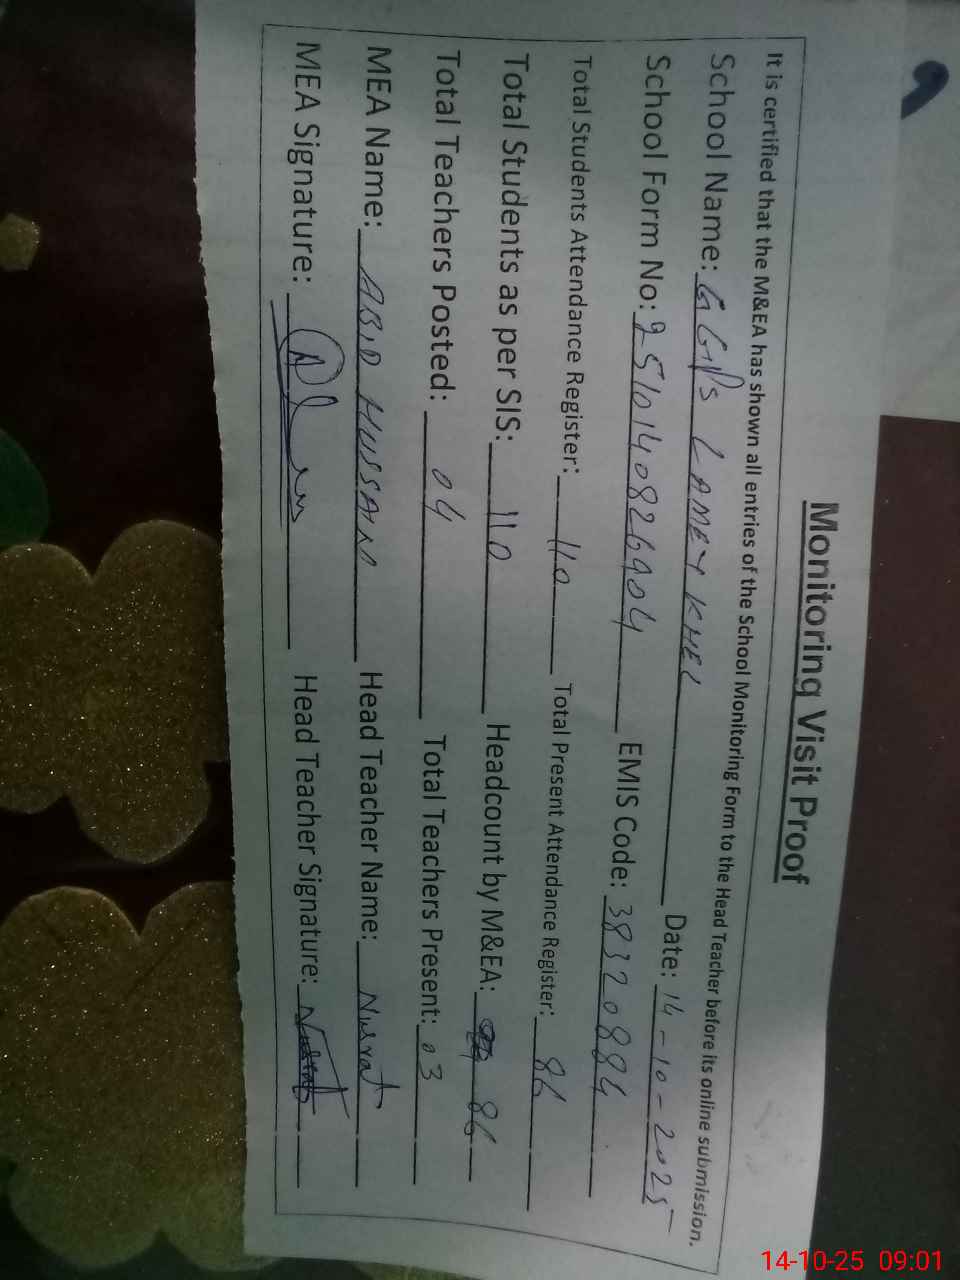 Monitoring Visit Proof
It is certified that the M&EA has shown all entries of the School Monitoring Form to the Head Teacher before its online submission.
School Name: GGPS LAMEY KHEL Date: 14-10-2025
School Form No: 2510140826904 EMIS Code: 38320884
Total Students Attendance Register: 110 Total Present Attendance Register: 86
Total Students as per SIS: 110 Headcount by M&EA: 86
Total Teachers Posted: 04 Total Teachers Present: 03
MEA Name: ABID HUSSAIN Head Teacher Name: Nusrat
MEA Signature: Head Teacher Signature: Nusrat
14-10-25 09:01